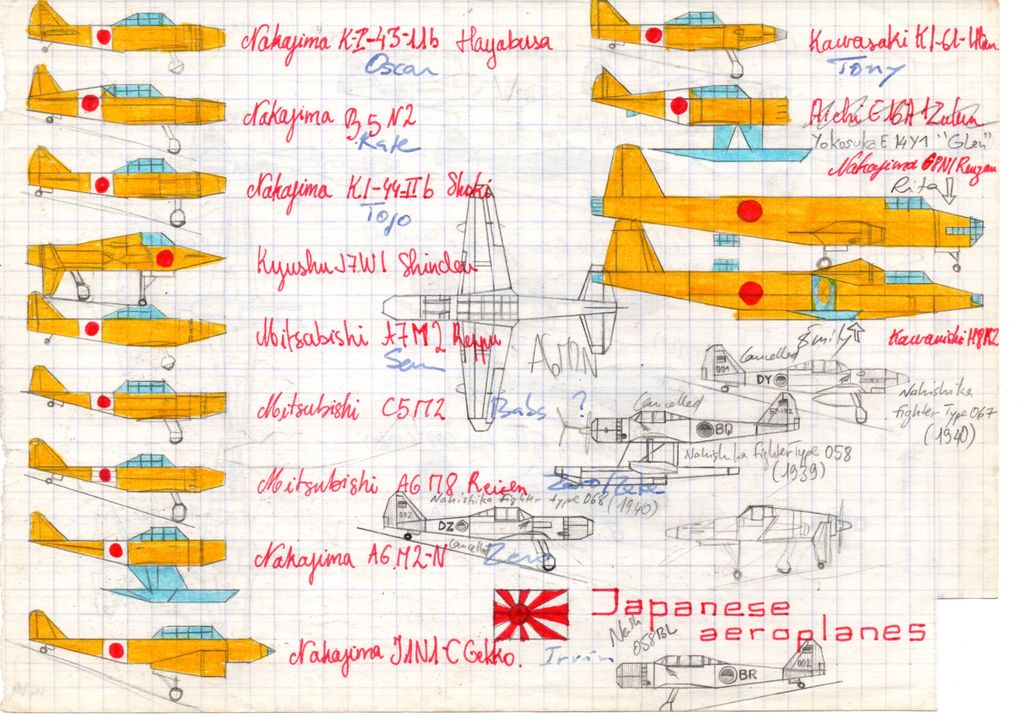 Nakajima K-I-43-11b Hayabusa
Oscar
Nakajima B5N2
Kate
Nakajima K.I-44-IIb Shoki
Tojo
Kyushu J7W1 Shinden
Mitsabishi A7M2 Reppu
Sam
A6M2N
Mitsubishi C5M2 Babs ?
Mitsubishi A6M8 Reisen Zero/Zeke
Nahishika fighter type 068 (1940)
002
DZ
Cancelled
Nakajima A6M2-N Zero
Nakajima J1N1-C Gekko. Irvin
Kawasaki K1-61-
Tony
Aichi E16A1 Zuiun
Yokosuka E14Y1 "Glen"
Nakajima G8N1 Renzan
Rita
Kawanishi H8K2
Emily
Cancelled
001
DY
Nahishika
fighter Type 067
(1940)
Cancelled
BQ
Nahishika fighter Type 058
(1939)
Japanese
aeroplanes
058BL
002
BR